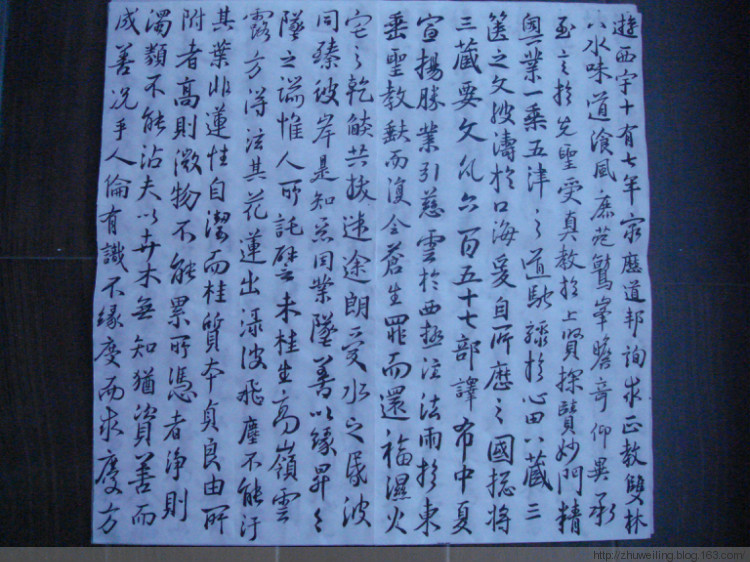 遊西宇十有七年窮歷道邦詢求正教雙林
八水味道湌風鹿菀鷲峯瞻奇仰異承
至言於先聖受真教於上賢探賾妙門精
奧業一乘五律之道馳驟於心田八藏三
篋之文波濤於口海爰自所歷之國總將
三藏要文凡六百五十七部譯布中夏
宣揚勝業引慈雲於西極注法雨於東
垂聖教缺而復全蒼生罪而還福濕火
宅之乾燄共拔迷途朗愛水之昏波
同臻彼岸是知惡因業墜善以緣昇々
墜之端惟人所託譬夫桂生高嶺雲
露方得泫其花蓮出淥波飛塵不能汙
其葉非蓮性自潔而桂質本貞良由所
附者高則微物不能累所憑者淨則
濁類不能沾夫以卉木無知猶資善而
成善況乎人倫有識不緣慶而求慶方
http://zhuweiling.blog.163.com/